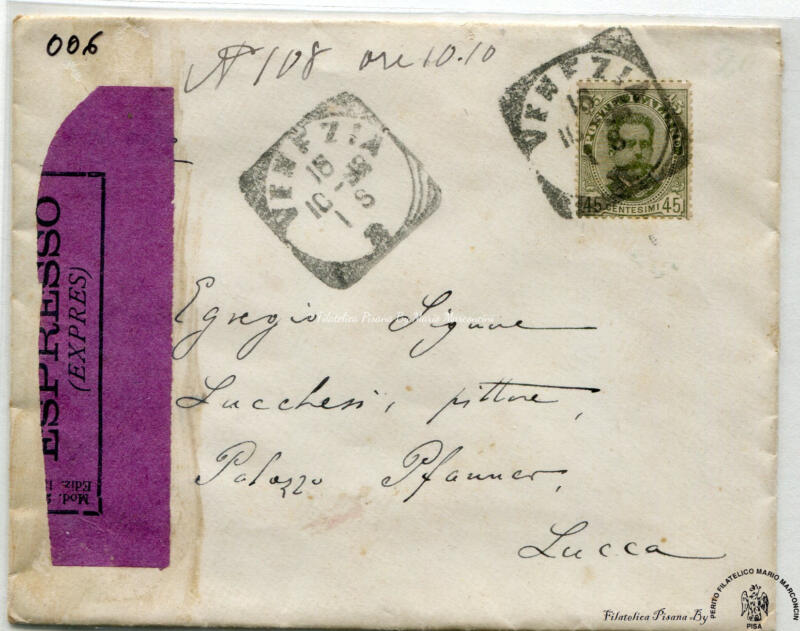 006
N 108 ore 10.10
VENEZIA
VENEZIA
POSTE ITALIANE
45 CENTESIMI 45
ESPRESSO
(EXPRES)
Mod.
Ediz.
Egregio Signore
Filatelica Pisana By Mario Marconcini
Lucchesi, pittore,
Palazzo Pfanner,
Lucca
Filatelica Pisana By
PERITO FILATELICO MARIO MARCONCINI
PISA